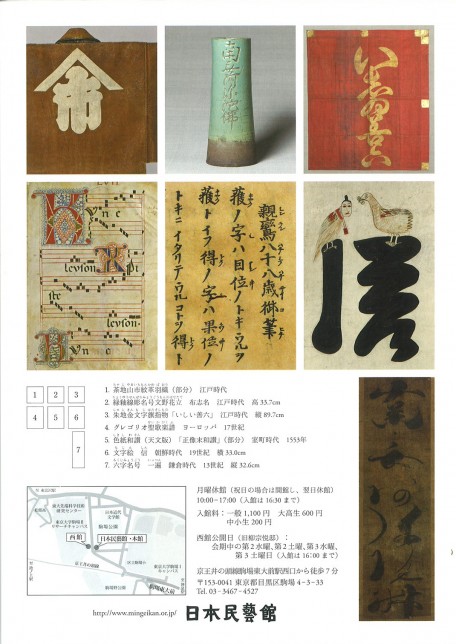 南無阿弥陀仏
いしゐ善六
親鸞八十八歳御筆
獲ノ字ハ因位ノトキウルヲ
獲トイフ得ノ字ハ果位ノ
トキニイタリテウルコトヲ得ト
Kyrie
leyson. Xpi
ste
leyson.
Kyrie
1 2 3
4 5 6
7
1. 茶地山市紋革羽織（部分） 江戸時代
2. 緑釉線彫名号文野花立 布志名 江戸時代 高 33.7cm
3. 朱地金文字旗指物「いしい善六」 江戸時代 縦 89.7cm
4. グレゴリオ聖歌楽譜 ヨーロッパ 17世紀
5. 色紙和讃（天文版）「正像末和讃」（部分） 室町時代 1553年
6. 文字絵 信 朝鮮時代 19世紀 横 33.0cm
7. 六字名号 一遍 鎌倉時代 13世紀 縦 32.6cm
月曜休館（祝日の場合は開館し、翌日休館）
10:00−17:00（入館は 16:30 まで）
入館料：一般 1,100 円 大高生 600 円
中小生 200 円
西館公開日（旧柳宗悦邸）：
会期中の第2水曜、第2土曜、第3水曜、
第3土曜日（入館は 16:00 まで）
京王井の頭線駒場東大前駅西口から徒歩7分
〒153-0041 東京都目黒区駒場 4−3−33
Tel. 03−3467−4527
西館
日本民藝館・本館
駒場公園
京王井の頭線
駒場東大前
http://www.mingeikan.or.jp/ 日本民藝館